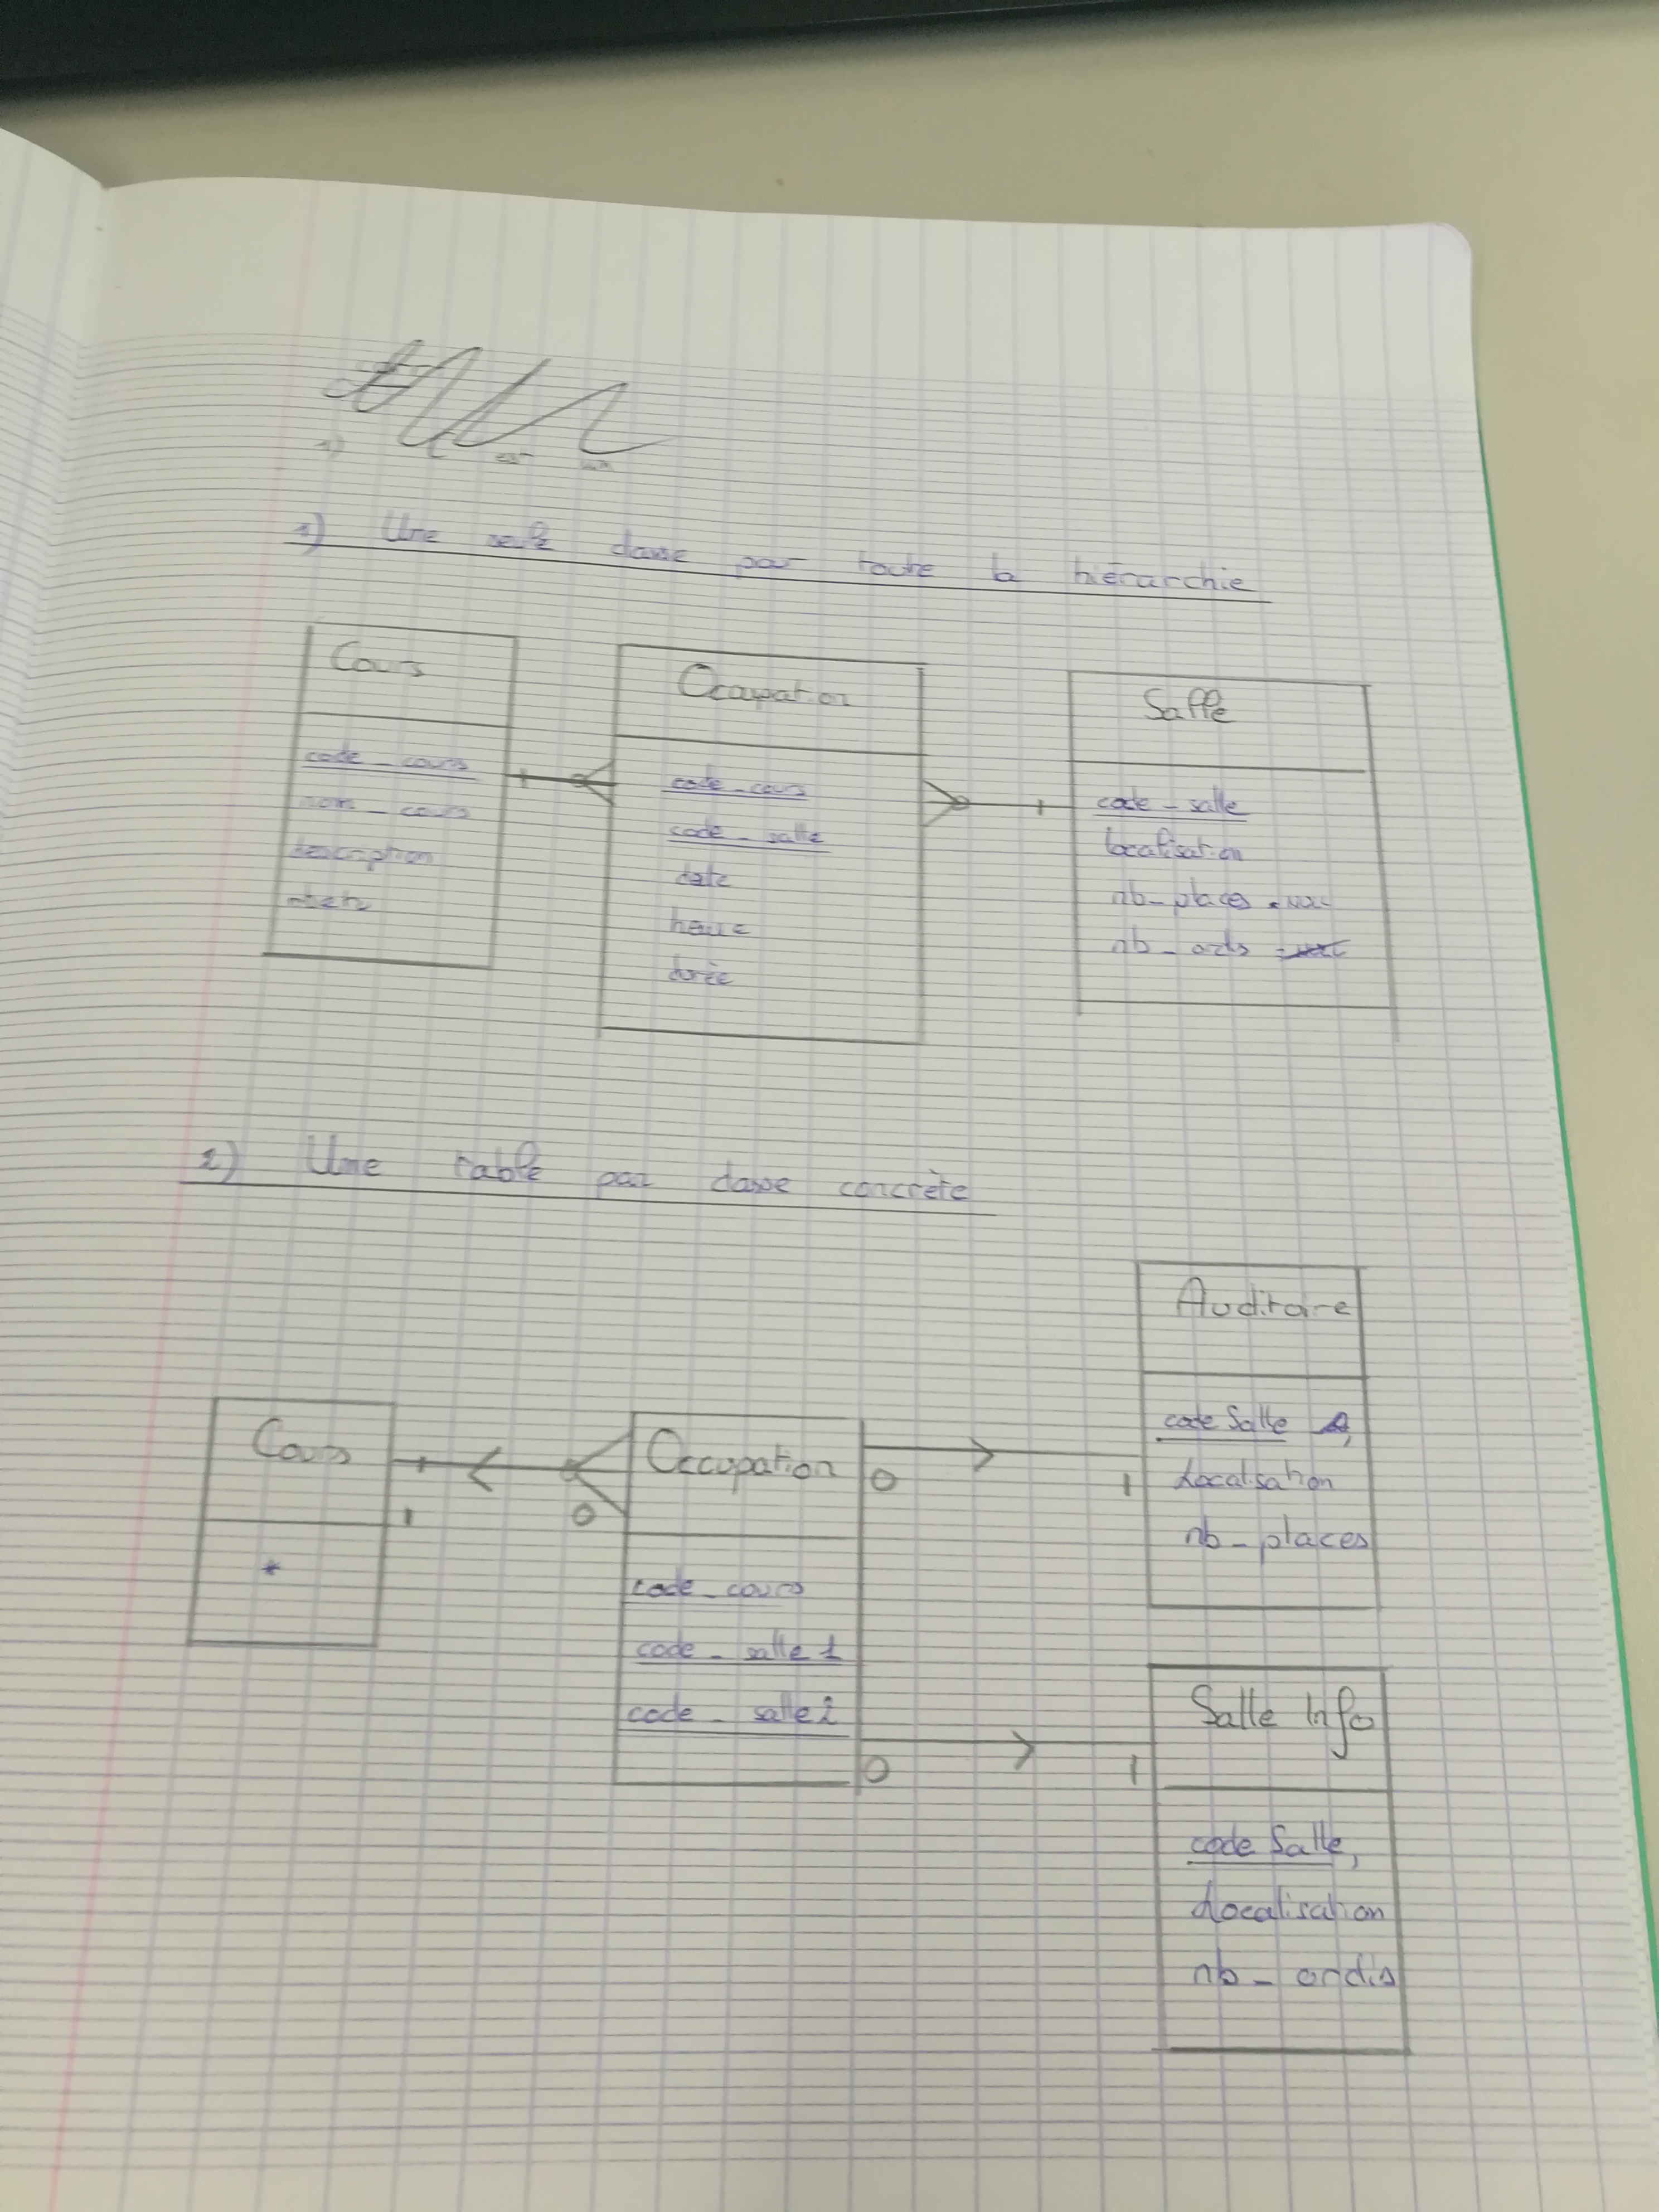 1) Une seule classe par toute la hiérarchie
Cours
code_cours
nom_cours
description
Occupation
code_cours
code_salle
date
heure
durée
Salle
code_salle
localisation
nb_places
nb_ordis
2) Une table par classe concrète
Cours
*
1
0
Occupation
code_cours
code_salle 1
code_salle 2
0
1
0
1
Auditoire
code Salle
Localisation
nb_places
Salle Info
code Salle,
Localisation
nb_ordis